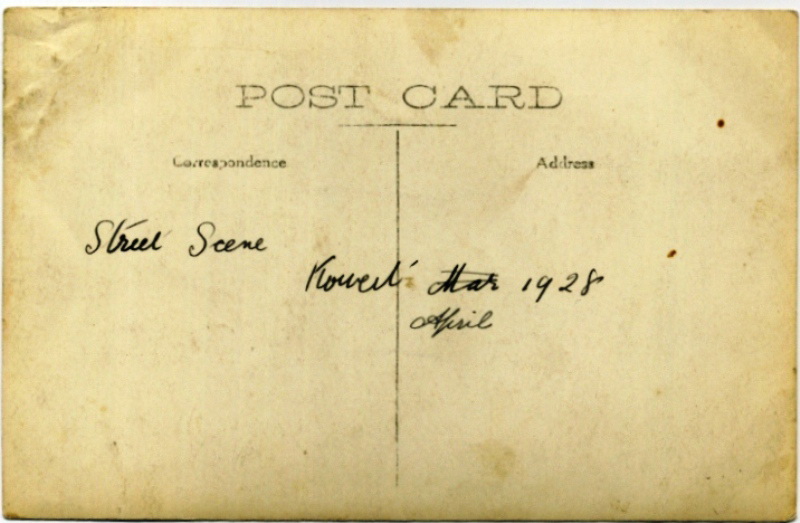 POST CARD
Correspondence
Address
Street Scene
Koweit Mar 1928
April